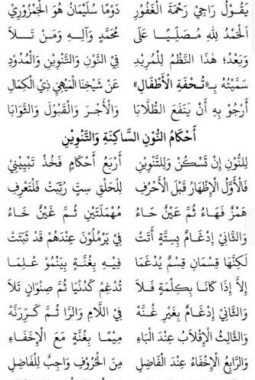 يَقُولُ رَاجِي رَحْمَةِ الْغَفُورِ دَوْمًا سُلَيْمَانُ هُوَ الْجَمْزُورِي
الْحَمْدُ لِلَّهِ مُصَلِّيًا عَلَى مُحَمَّدٍ وَآلِهِ وَمَنْ تَلَا
وَبَعْدُ هٰذَا النَّظْمُ لِلْمُرِيدِ فِي النُّونِ وَالتَّنْوِينِ وَالْمُدُودِ
سَمَّيْتُهُ بِـ«تُحْفَةِ الْأَطْفَالِ» عَنْ شَيْخِنَا الْمِيهِيِّ ذِي الْكَمَالِ
أَرْجُو بِهِ أَنْ يَنْفَعَ الطُّلَّابَا وَالْأَجْرَ وَالْقَبُولَ وَالثَّوَابَا
أَحْكَامُ النُّونِ السَّاكِنَةِ وَالتَّنْوِينِ
لِلنُّونِ إِنْ تَسْكُنْ وَلِلتَّنْوِينِ أَرْبَعُ أَحْكَامٍ فَخُذْ تَبْيِينِي
فَالْأَوَّلُ الْإِظْهَارُ قَبْلَ الْأَحْرُفِ لِلْحَلْقِ سِتٌّ رُتِّبَتْ فَلْتَعْرِفِ
هَمْزٌ فَهَاءٌ ثُمَّ عَيْنٌ حَاءُ مُهْمَلَتَيْنِ ثُمَّ غَيْنٌ خَاءُ
وَالثَّانِي إِدْغَامٌ بِسِتَّةٍ أَتَتْ فِي يَرْمُلُونَ عِنْدَهُمْ قَدْ ثَبَتَتْ
لَكِنَّهَا قِسْمَانِ قِسْمٌ يُدْغَمَا فِيهِ بِغُنَّةٍ بِيَنْمُو عُلِمَا
إِلَّا إِذَا كَانَا بِكِلْمَةٍ فَلَا تُدْغِمْ كَدُنْيَا ثُمَّ صِنْوَانٍ تَلَا
وَالثَّانِي إِدْغَامٌ بِغَيْرِ غُنَّهْ فِي اللَّامِ وَالرَّا ثُمَّ كَرِّرَنَّهْ
وَالثَّالِثُ الْإِقْلَابُ عِنْدَ الْبَاءِ مِيمًا بِغُنَّةٍ مَعَ الْإِخْفَاءِ
وَالرَّابِعُ الْإِخْفَاءُ عِنْدَ الْفَاضِلِ مِنَ الْحُرُوفِ وَاجِبٌ لِلْفَاضِلِ